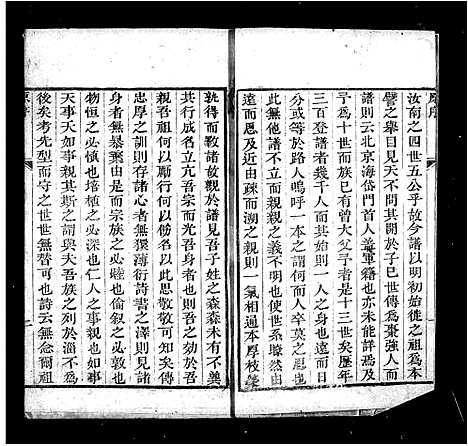 原序
汝南之四世五公乎故今譜以明初始徙之祖為本
譬之舉目見天不問其闢於子已世傳為棗強人而
譜則云北京海岱門首人蓋軍籍也亦未能詳焉迄
予為十世而族已有曾大父予者是十三世矣歷年
三百登譜者幾千人而其始則一人也以一人之身
分或等於路人嗚呼一本之謂何而人卒莫之思也
此無他譜不立而親親之義不明也使世系瞭然由
遠而思及近由疎而溯之親則一氣相通本厚枝榮
孰得而敎諸故觀於譜見吾子姓之森森未有不奠
其行成名立亢吾宗而光吾身者也勿則效吾
親吾祖何以勵行何以傍名以此思敬敬可知矣傳
忠厚之訓則存諸心者無猥薄衍詩書之澤則見諸
身者無暴棄由是而宗族之必睦也倫叙之必敦也
物恒之必慎也培植之必深也仁人之事親也如事
天事天如事親其斯之謂與夫吾族於淄不為
後矣考先型而守之世世無替可也詩云無念爾祖